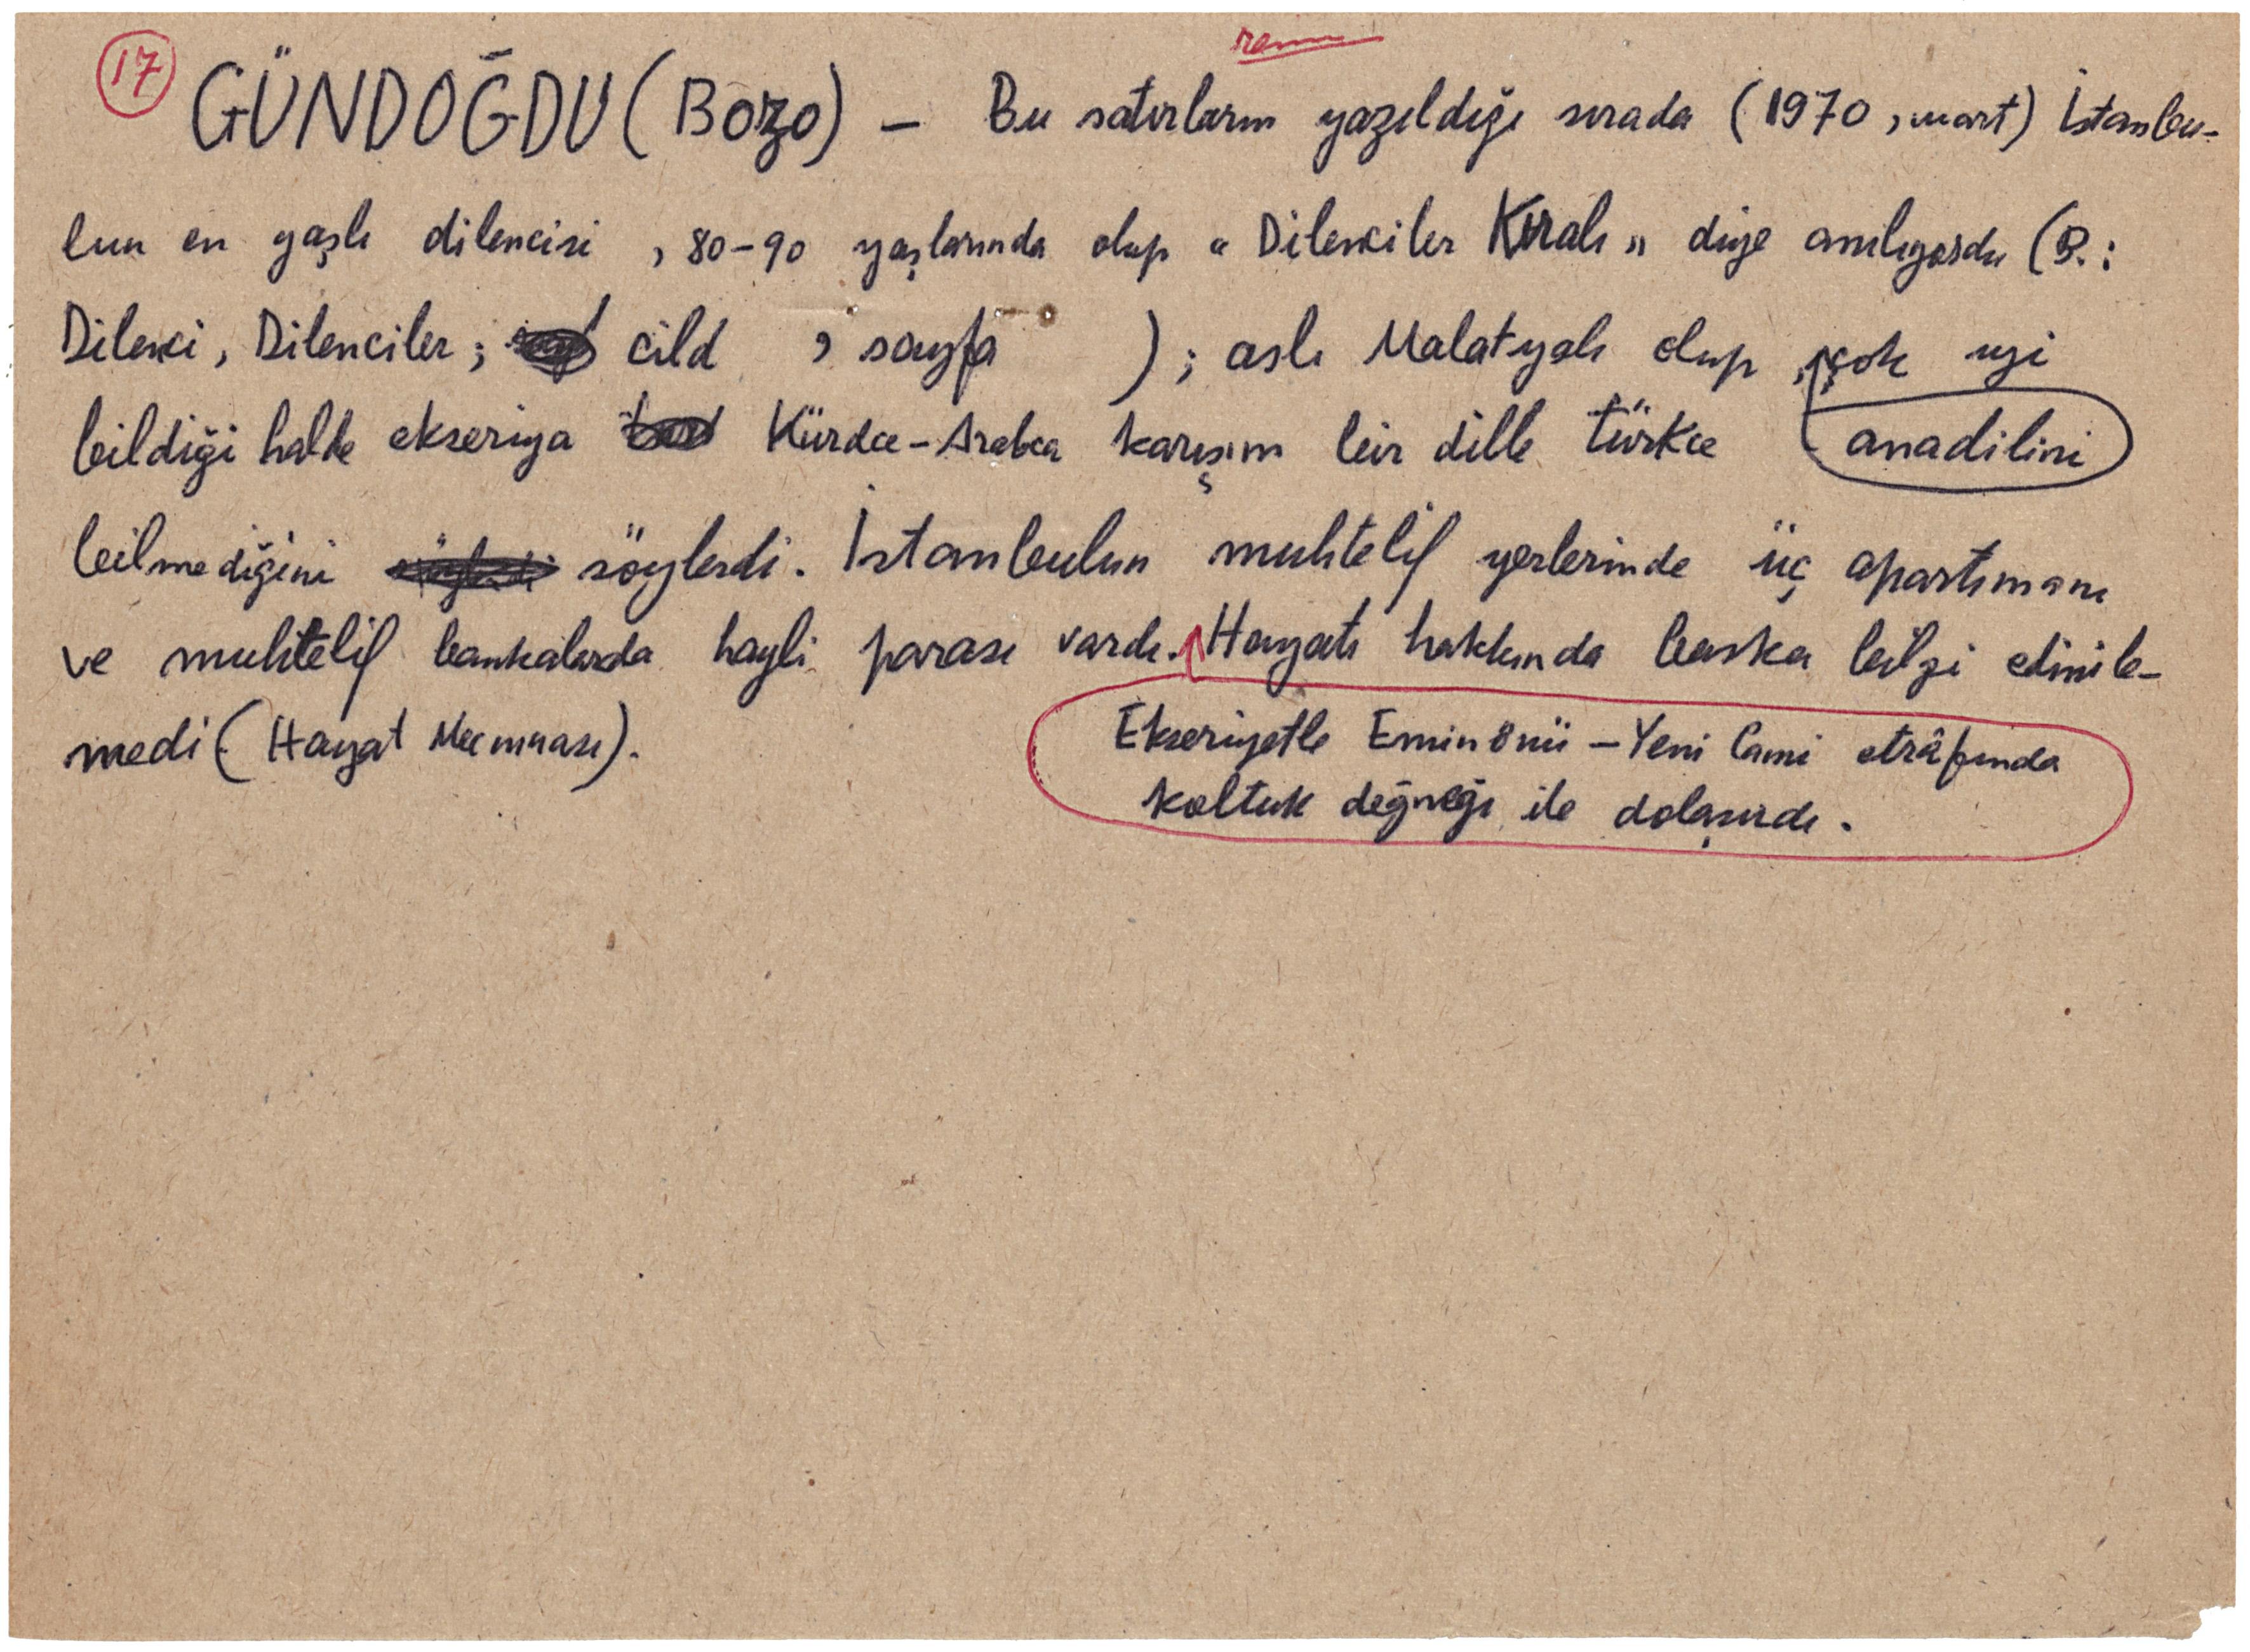 17 GÜNDOĞDU (Bozo) — Bu satırların yazıldığı sırada (1970, mart) İstanbu-
lun en yaşlı dilencisi, 80-90 yaşlarında olup « Dilenciler Kıralı » diye anılıyordu (B.:
Dilenci, Dilenciler; cild , sayfa ); aslı Malatyalı olup, çok iyi
bildiği halde ekseriya Kürdce-Arabca karışım bir dille türkce anadilini
bilmediğini söylerdi. İstanbulun muhtelif yerlerinde üç apartımanı
ve muhtelif bankalarda hayli parası vardı. Hayatı hakkında baska bilgi edinile-
medi (Hayat Mecmuası).
Ekseriyetle Eminönü — Yeni Cami etrâfında
koltuk değneği ile dolaşırdı.